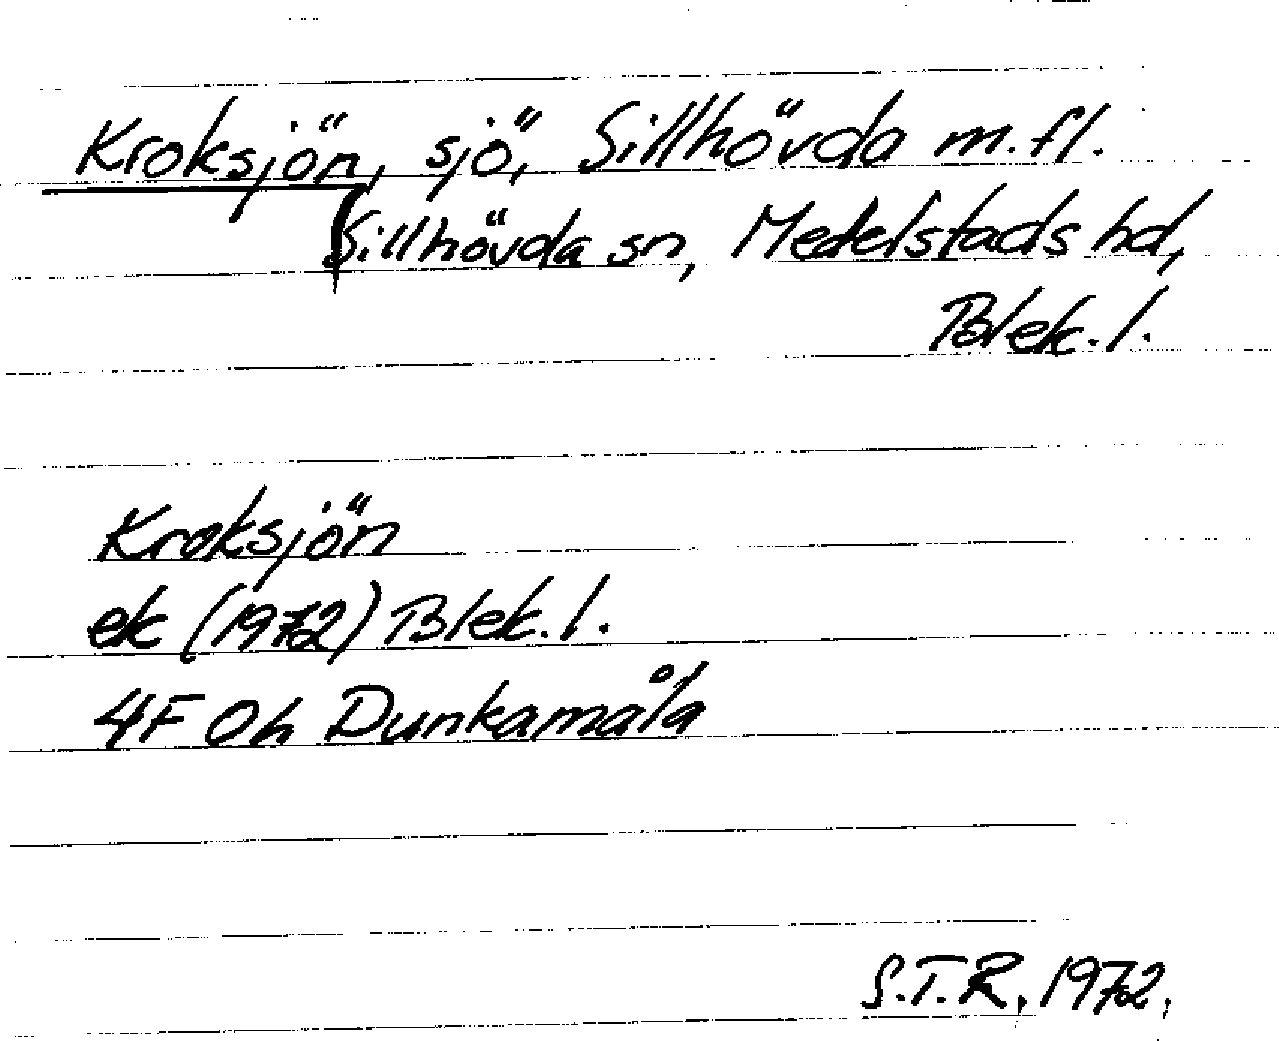 Kroksjön, sjö, Sillhövda m.fl.
Sillhövda sn, Medelstads hd,
Blek. l.
Kroksjön
ek (1972) Blek. l.
4F 0h Dunkamåla
S.T.R. 1972.